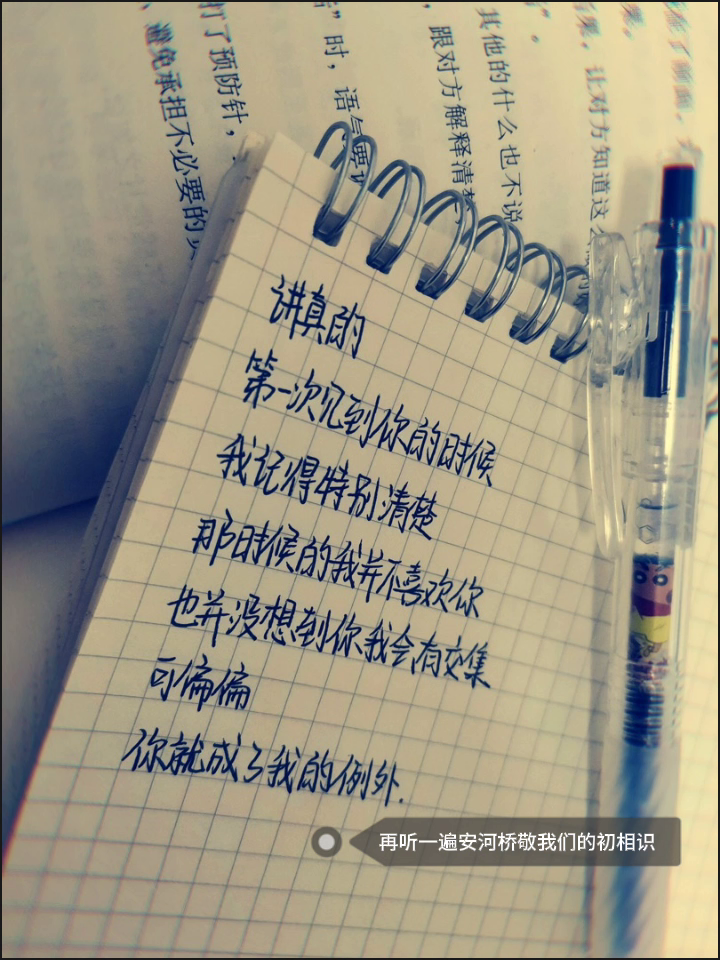 讲真的
第一次见到你的时候
我记得特别清楚
那时候的我并不喜欢你
也并没想到你我会有交集
可偏偏
你就成了我的例外.
再听一遍安河桥敬我们的初相识
其他的什么也不说
跟对方解释清楚
让对方知道这
打了预防针，
避免承担不必要的